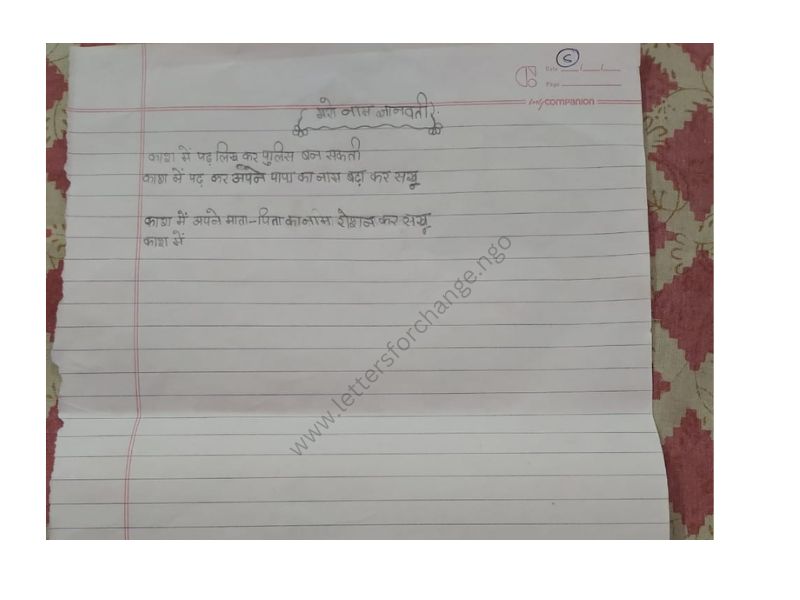 6
Date / /
Page
Long COMPANION
मेरो नाम जानवती
काश में पढ़ लिख कर पुलिस बन सकती
काश में पढ़ कर अपने पापा का नाम बढ़ा कर सखू
काश में अपने माता-पिता का नाम रोशन कर सखू
काश में
www.lettersforchange.ngo